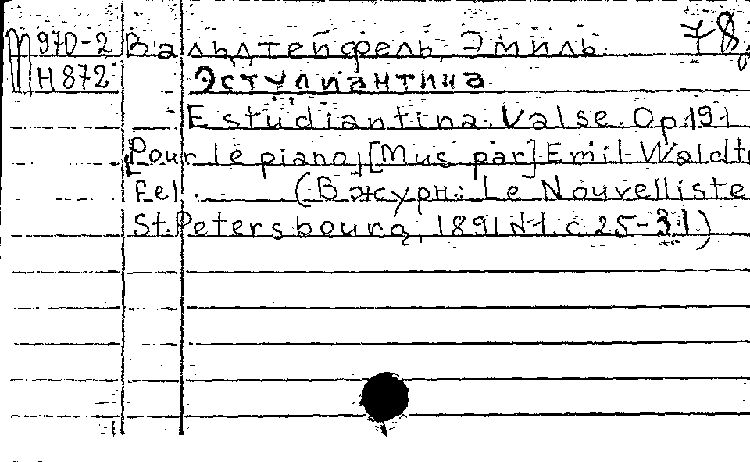 М 970-2 Вальдтейфель, Эмиль. 78
Н 872 Эстудиантина
Estudiantina. Valse. Op. 191
[Pour le piano]. [Mus. par] Emil Waldt
fel. (В журн.: Le Nouvelliste
St. Petersbourg, 1891 №1. с. 25-31)